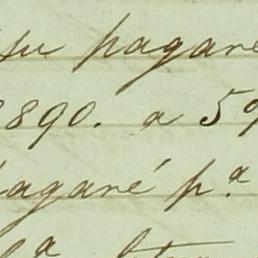 su pagaré
1890. a 59
pagaré p.ª